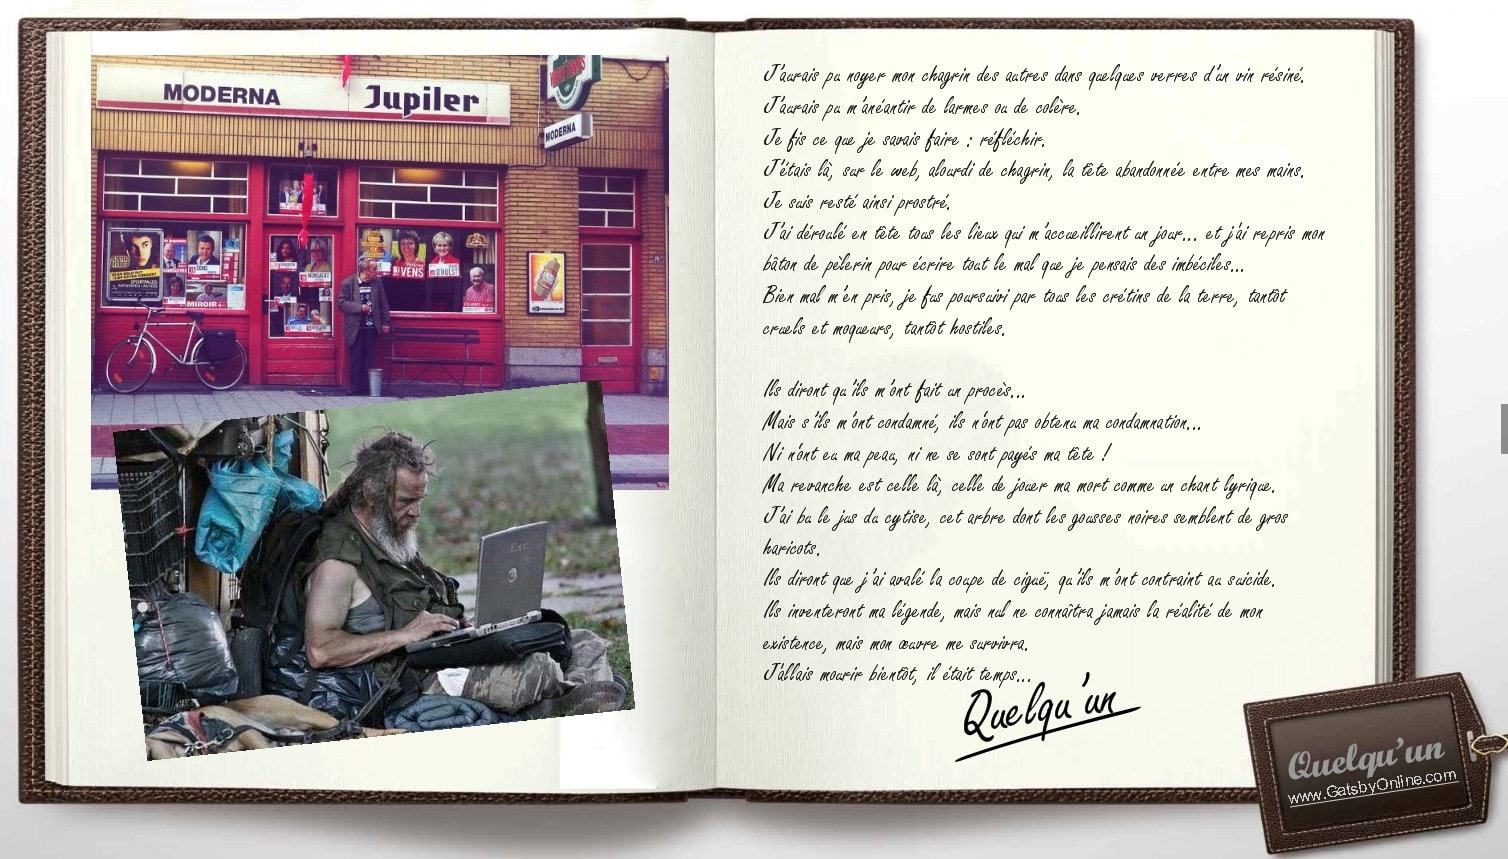 MODERNA Jupiler
MODERNA
VENS
D'HULST
MIROIR
J'aurais pu noyer mon chagrin des autres dans quelques verres d'un vin résiné.
J'aurais pu m'anéantir de larmes ou de colère.
Je fis ce que je savais faire : réfléchir.
J'étais là, sur le web, alourdi de chagrin, la tête abandonnée entre mes mains.
Je suis resté ainsi prostré.
J'ai déroulé en tête tous les lieux qui m'accueillirent un jour... et j'ai repris mon
bâton de pèlerin pour écrire tout le mal que je pensais des imbéciles...
Bien mal m'en pris, je fus poursuivi par tous les crétins de la terre, tantôt
cruels et moqueurs, tantôt hostiles.
Ils diront qu'ils m'ont fait un procès...
Mais s'ils m'ont condamné, ils n'ont pas obtenu ma condamnation...
Ni n'ont eu ma peau, ni ne se sont payés ma tête !
Ma revanche est celle là, celle de jouer ma mort comme un chant lyrique.
J'ai bu le jus du cytise, cet arbre dont les gousses noires semblent de gros
haricots.
Ils diront que j'ai avalé la coupe de ciguë, qu'ils m'ont contraint au suicide.
Ils inventeront ma légende, mais nul ne connaîtra jamais la réalité de mon
existence, mais mon œuvre me survivra.
J'allais mourir bientôt, il était temps...
Quelqu'un
Quelqu'un
www.GatsbyOnline.com